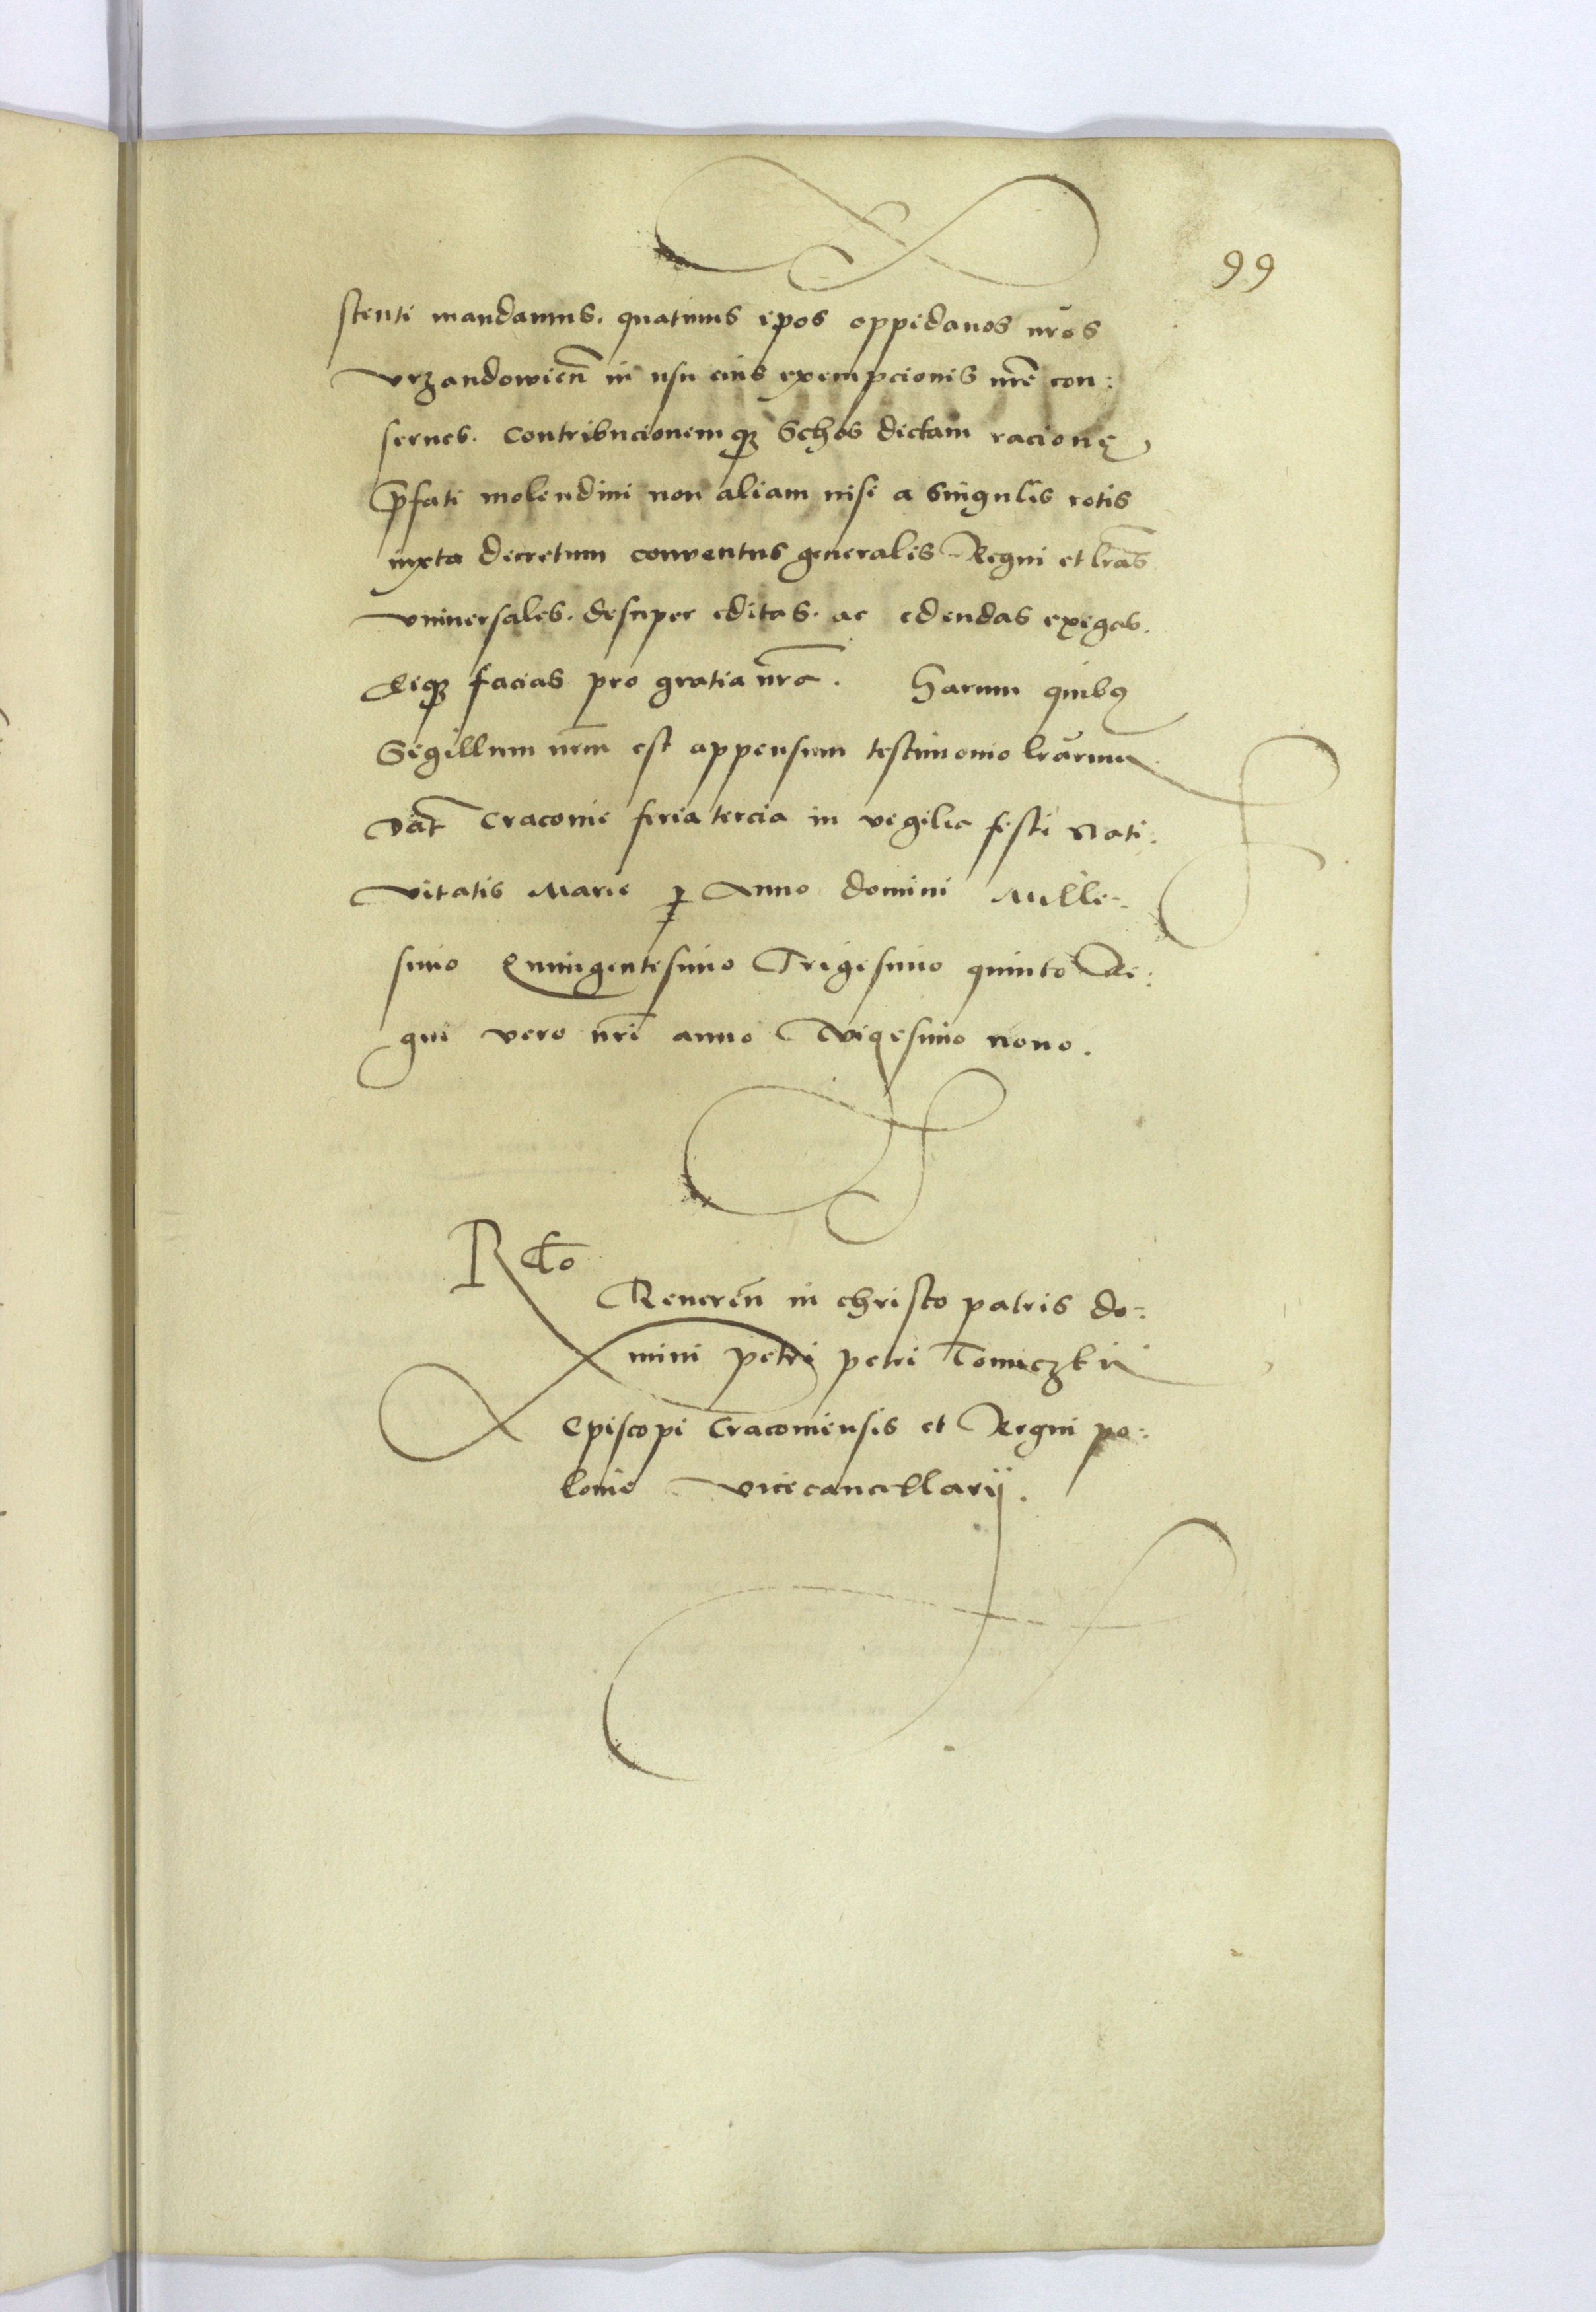 99
stenti mandamus. quatinus ipos oppidanos nr̄os
vrzandowien̄ in usu eius exempcionis nr̄e con:
serues. Contribucionemqꝫ Schos dictam racione
p̄fati molendini non aliam nisi a singulis rotis
iuxta decretum conventus generalis Regni et lr̄as
vniuersales. desuper editas. ac edendas exigas.
facias pro gratia nr̄a. Harum quibꝯ
Sigillum nr̄m est appensum testimonio lr̄arum
Dat̄ Cracovie feria tercia in vigilia festi Nati:
vitatis Marie Anno domini Mille:
simo Quingentesimo Trigesimo quinto Re:
gni vero nr̄i anno vigesimo nono.
Rel̄o
Reueren̄ in christo patris do:
mini petri petri Tomiczkii
Episcopi Cracouiensis et Regni po:
lonie vicecancellarij.